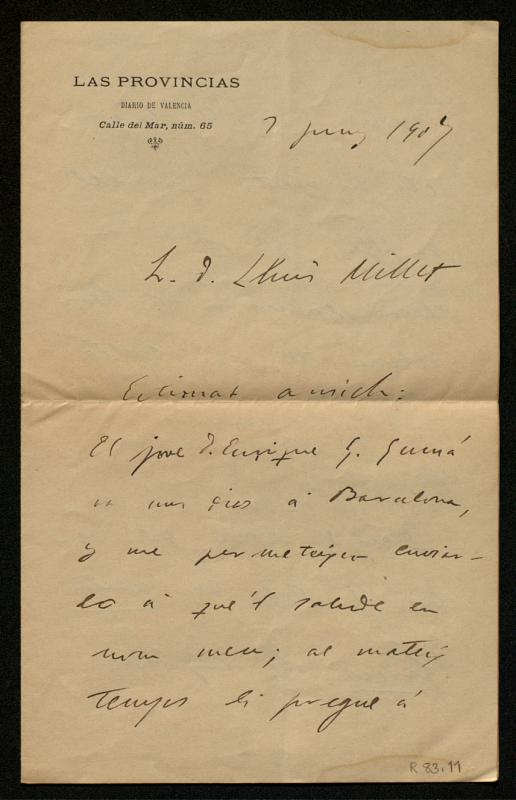 LAS PROVINCIAS
DIARIO DE VALENCIA
Calle del Mar, núm. 65
7 juny 1907
S. D. Lluis Millet
Estimat amich:
El jove D. Enrique G. Gomá
va uns dies á Barcelona,
y me permeteixc enviar-
lo á que'l salude en
nom meu; al mateix
temps li pregue á
R 83.11